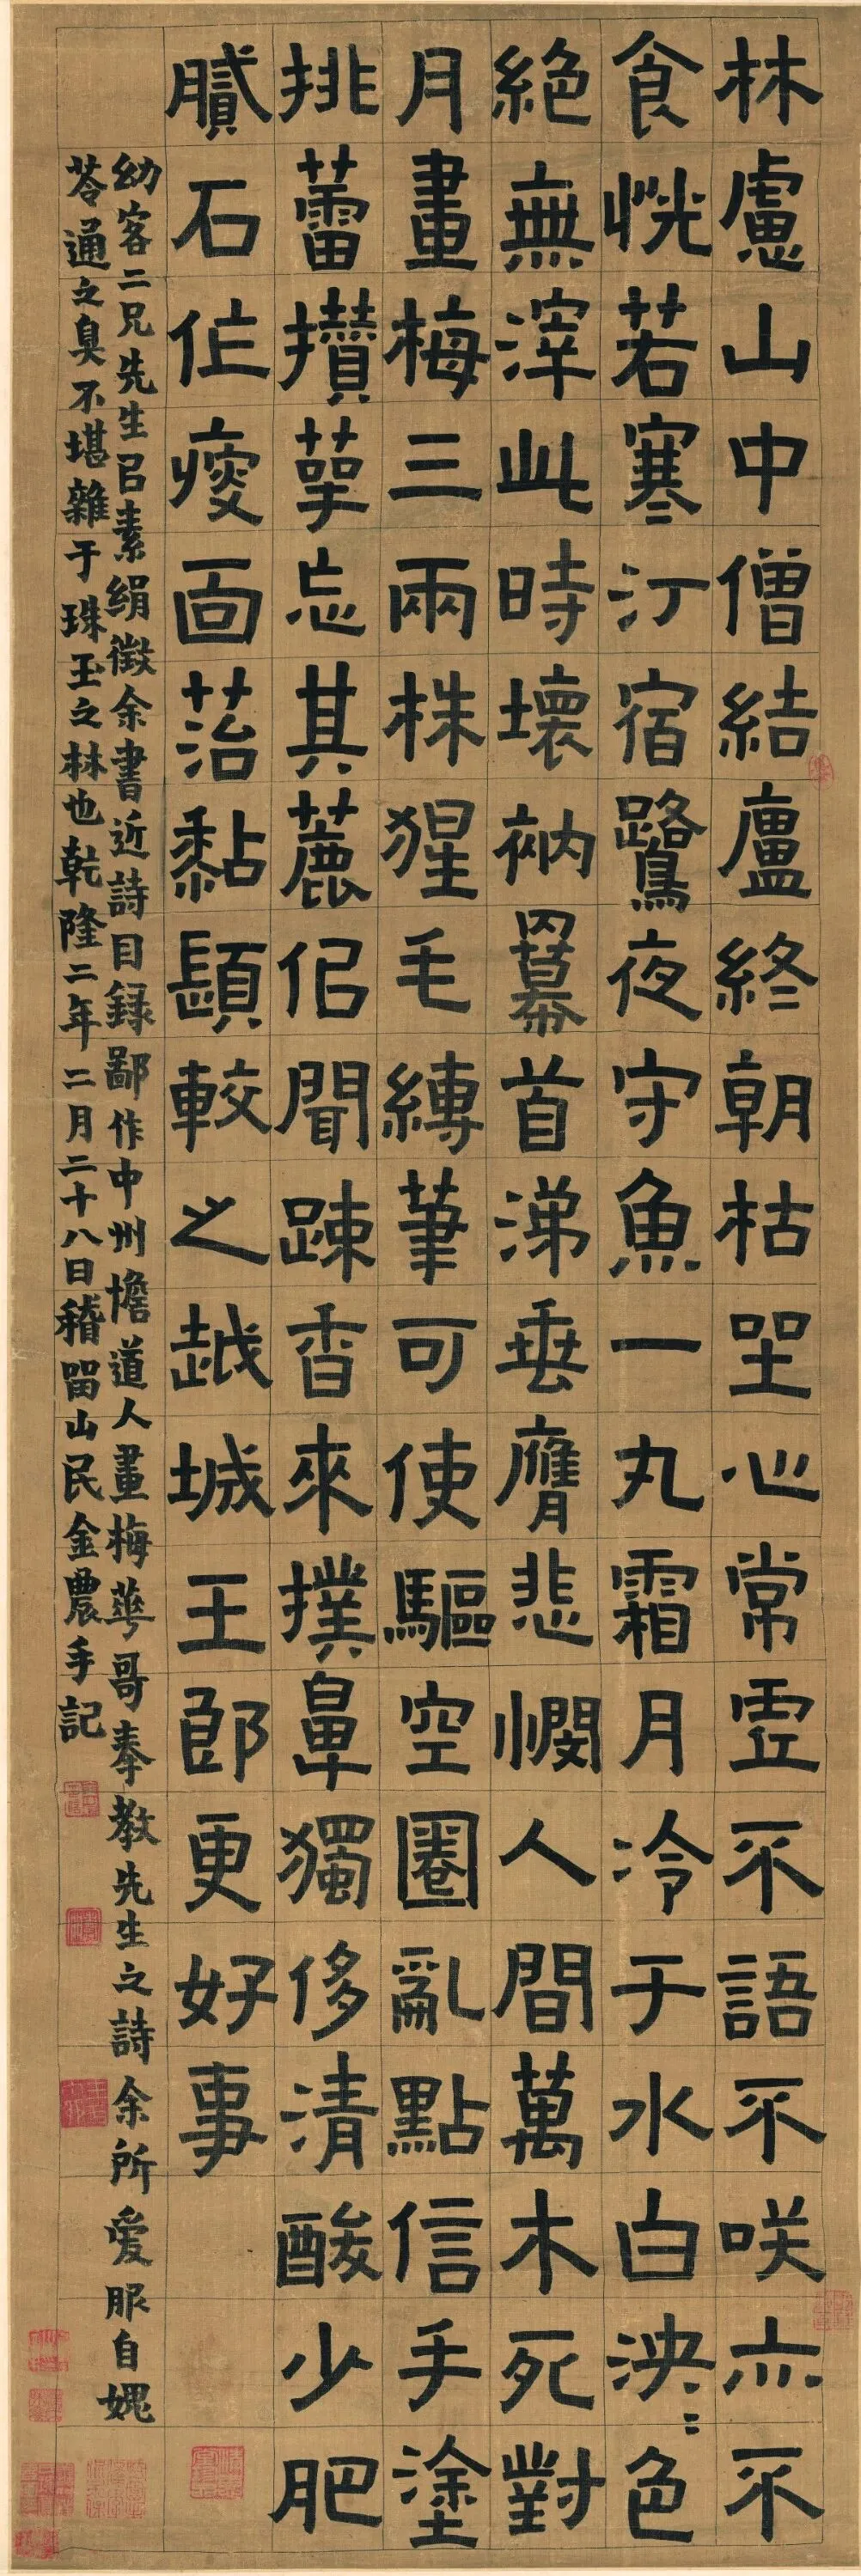 林慮山中僧結廬終朝枯坐心常虛不語不咲亦不
食恍若寒汀宿鷺夜守魚一丸霜月冷于水白泱〻色
絶無滓此時壞衲羃首涕垂膺悲憫人間萬木死對
月畫梅三兩株猩毛縛筆可使驅空圈亂點信手塗
挑蕾攢萼忘其麤但聞踈香來撲鼻獨侈清酸少肥
膩石作瘦面苔黏顋較之越城王郎更好事
幼客二兄先生㠯素絹徵余書近詩目録鄙作中州憺道人畫梅華哥奉教先生之詩余所爱服自媿
苓通之臭不堪雜于珠玉之林也乾隆二年二月二十八日稽留山民金農手記